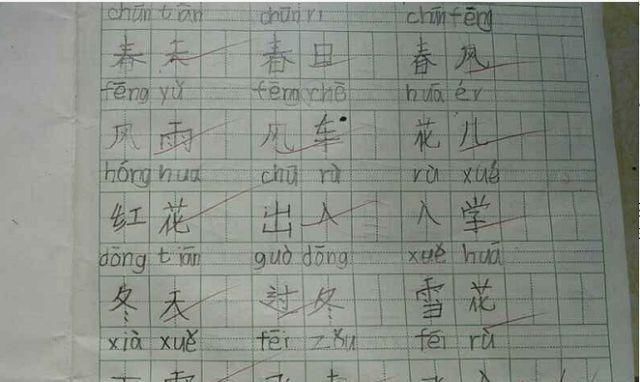 chūn tiān chūn rì chūn fēng
春天 春日 春风
fēng yǔ fēng chē huā ér
风雨 风车 花儿
hóng huā chū rù rù xué
红花 出入 入学
dōng tiān guò dōng xuě huā
冬天 过冬 雪花
xià xuě fēi zǒu fēi rù